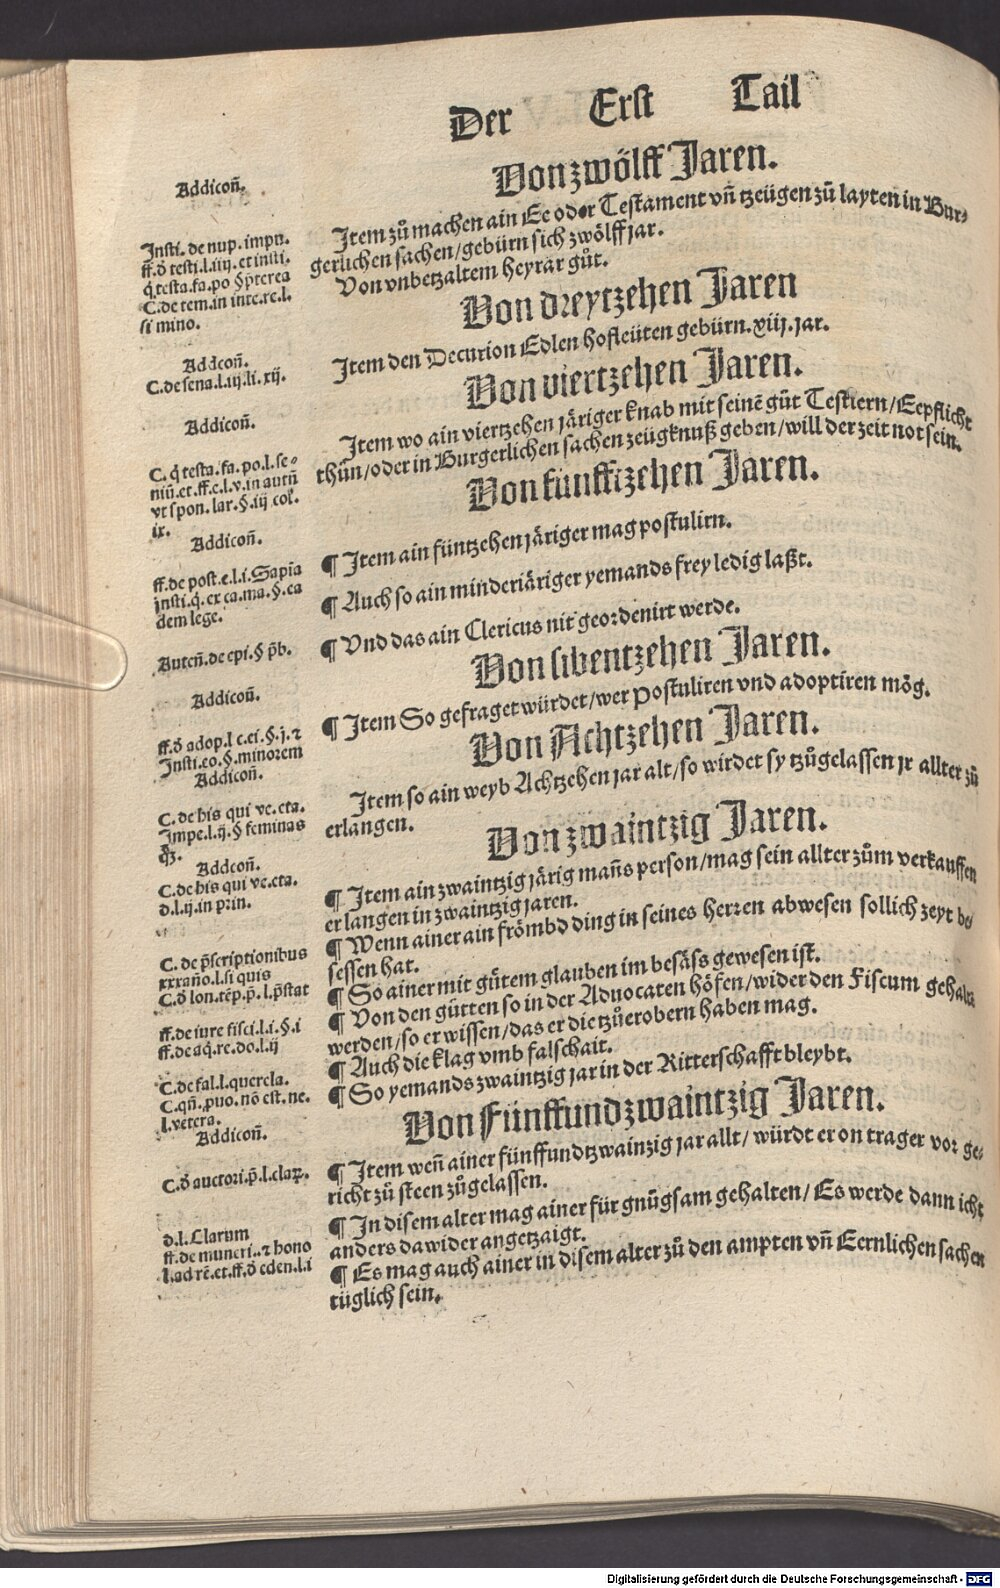 Der Erst Tail
Von zwölff Jaren.
Addicoñ.
Item zů machen ain Ee oder Testament vñ tzeügen zů layten in Bur-
gerlichen sachen/gebürn sich zwölff jar.
Von vnbetzaltem heyrat gůt.
Insti. de nup. impn.
ff. ð testi. l. iiij. et insti.
q̇ testa. fa. po §p̃terea
C. de tem. in inte. re. l.
si mino.
Von dreytzehen Jaren
Item den Decurion Edlen hofleüten gebürn. xiij. jar.
Addcoñ.
C. de sena. l. iij. li. xij.
Von viertzehen Jaren.
Addicoñ.
Item wo ain viertzehen järiger knab mit seinē gůt Testiern/Eepflicht
thůn/oder in Burgerlichen sachen zeügknuß geben/will der zeit not sein.
C. q̇ testa. fa. po. l. se-
niũ. et. ff. e. l. v. in autñ
vt spon. lar. §. iij col.
ix.
Von fünfftzehen Jaren.
Addicoñ.
¶ Item ain füntzehen järiger mag postulirn.
¶ Auch so ain minderjäriger yemands frey ledig laßt.
¶ Vnd das ain Clericus nit geordenirt werde.
ff. de post. e. l. i. Sapia
insti. q̇. ex ca. ma. §. ea
dem lege.
Auteñ. de epi. § p̃b.
Von sibentzehen Jaren.
Addicoñ.
¶ Item So gefraget würdet/wer Postuliren vnd adoptiren mög.
ff. ð adop. l e. ei. §. j. ⁊
Insti. eo. §. minorem
Von Achtzehen Jaren.
Addicoñ.
Item so ain weyb Achtzehen jar alt/so wirdet sy tzůgelassen jr allter zů
erlangen.
C. de his qui ve. eta.
Impe. l. ij. § feminas
qʒ.
Von zwaintzig Jaren.
Addcoñ.
C. de his qui ve. eta.
d. l. ij. in prin.
¶ Item ain zwaintzig järig mañs person/mag sein allter zům verkauffen
erlangen in zwaintzig jaren.
¶ Wenn ainer ain frömbd ding in seines herren abwesen sollich zeyt be
sessen hat.
¶ So ainer mit gůtem glauben im besäss gewesen ist.
¶ Von den gütten so in der Aduocaten höfen/wider den Fiscum gehalten
werden/so er wissen/das er die tzů erobern haben mag.
¶ Auch die klag vmb falschait.
¶ So yemands zwaintzig jar in der Ritterschafft bleybt.
C. de p̃scriptionibus
xxxaño. l. si quis
C. ð lon. tēp. p̃. l. p̃stat
ff. de iure fisci. l. i. §. i
ff. de aq̇. re. do. l. ij
C. de fal. l. querela.
C. qñ. ꝓuo. nō est. ne.
l. vetera.
Von Fünffundzwaintzig Jaren.
Addicoñ.
¶ Item weñ ainer fünffundtzwainzig jar allt/würdt er on trager vor ge-
richt zů steen zůgelassen.
¶ In disem alter mag ainer für gnůgsam gehalten/Es werde dann icht
anders dawider angetzaigt.
¶ Es mag auch ainer in disem alter zů den ampten vñ Eernlichen sachen
tüglich sein.
C. ð auctori. p̃. l. claꝝ.
d. l. Clarum
ff. de muneri. ⁊ hono
l. ad rē. et. ff. ð eden. l. i
Digitalisierung gefördert durch die Deutsche Forschungsgemeinschaft - DFG